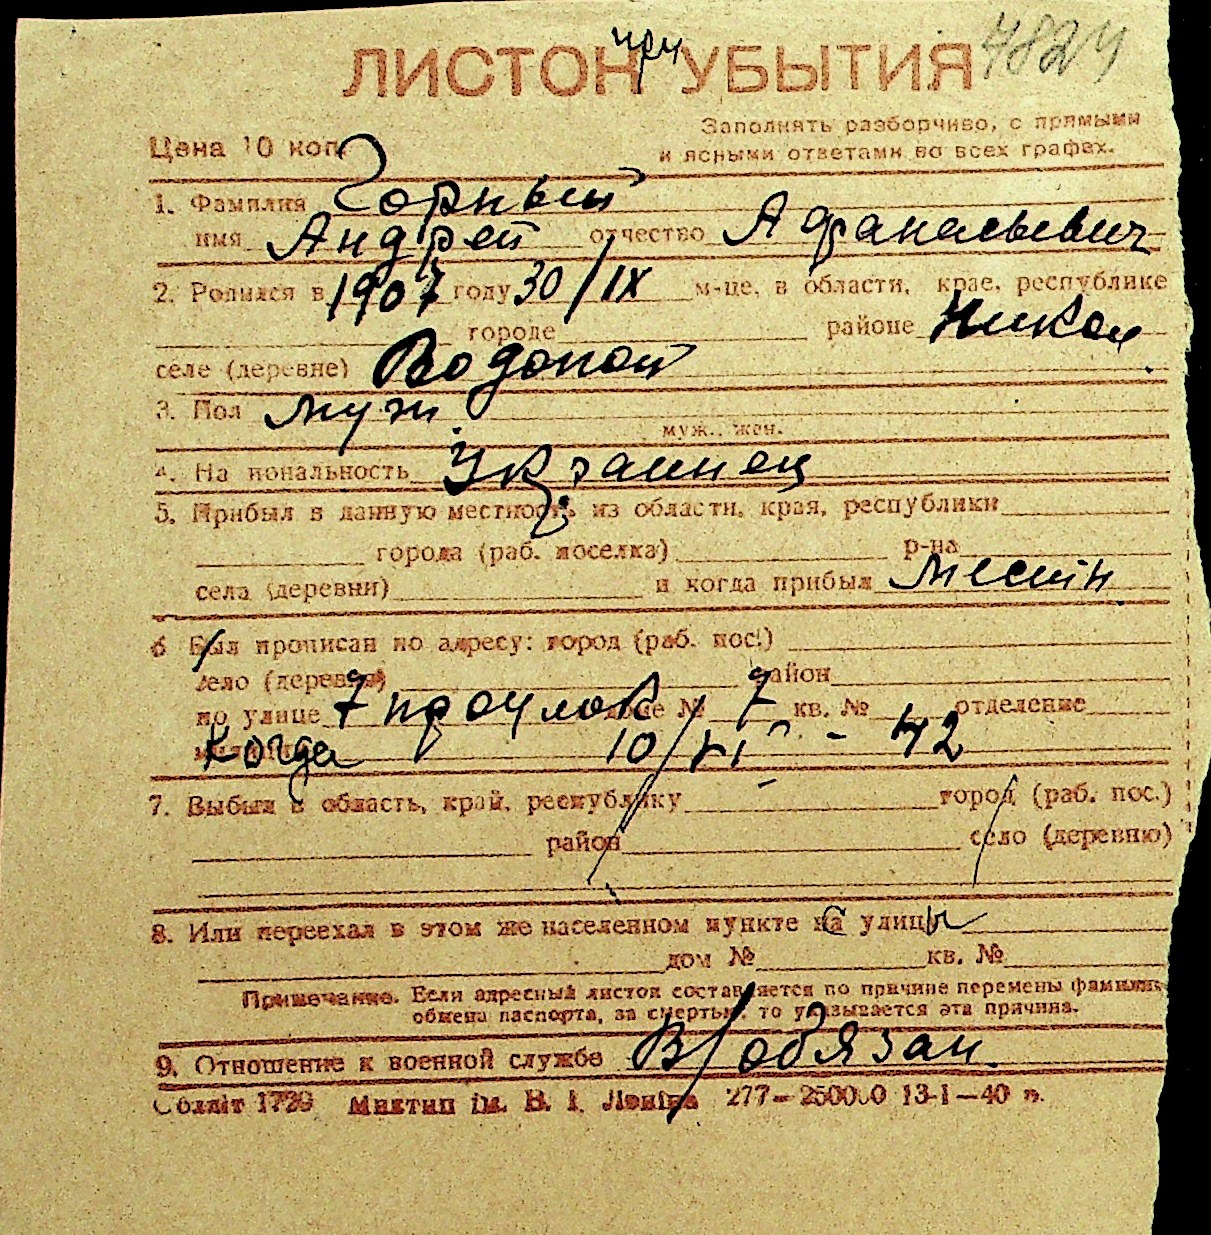 ЛИСТОК при УБЫТИЯ 4824
Заполнять разборчиво, с прямыми
Цена 10 коп.
и ясными ответами во всех графах.
1. Фамилия Горный
имя Андрей отчество Афанасьевич
2. Родился в 1907 году 30/IX м-це, в области, крае, республике
городе районе Никол
селе (деревне) Водопой
3. Пол муж.
муж., жен.
4. Национальность Украинец
5. Прибыл в данную местность из области, края, республики
города (раб. поселка) р-на
села (деревни) и когда прибыл местн
6 Был прописан по адресу: город (раб. пос.)
село (деревня) район
по улице 7 проулок доме № 7 кв. № отделение
милиции Когда 10/VI - 42
7. Выбыл в область, край, республику город (раб. пос.)
район село (деревню)
8. Или переехал в этом же населенном пункте с улицы
дом № кв. №
Примечание. Если адресный листок составляется по причине перемены фамилии,
обмена паспорта, за смертью, то указывается эта причина.
9. Отношение к военной службе В/обязан
Обліт 1739 Миктип ім. В. І. Леніна 277—250000 13-I—40 р.